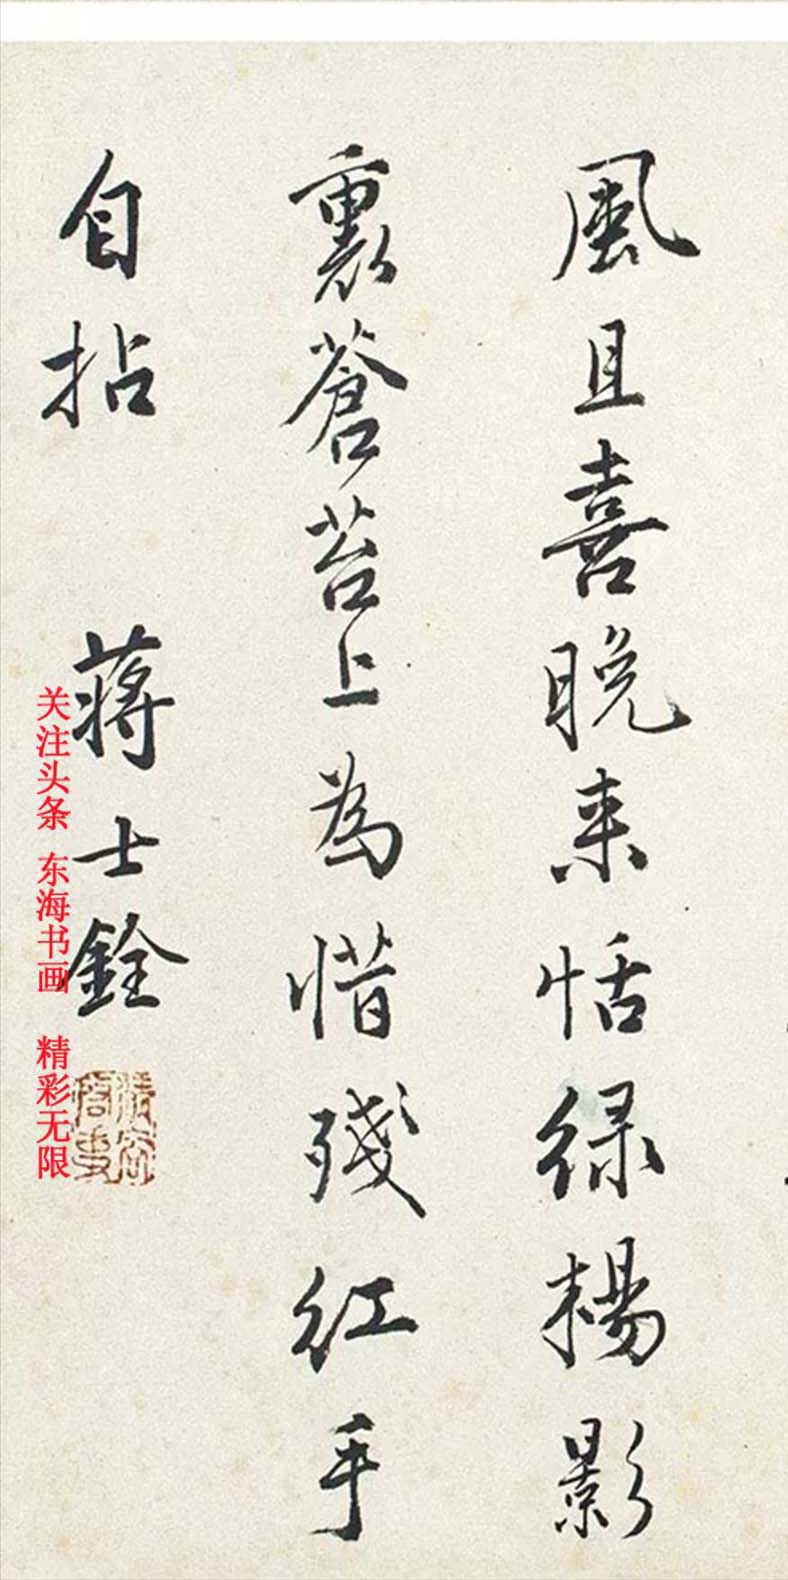 風且喜晚来恬绿楊影
裏蒼苔上為惜殘紅手
自拈 蔣士銓
关注头条 东海书画 精彩无限